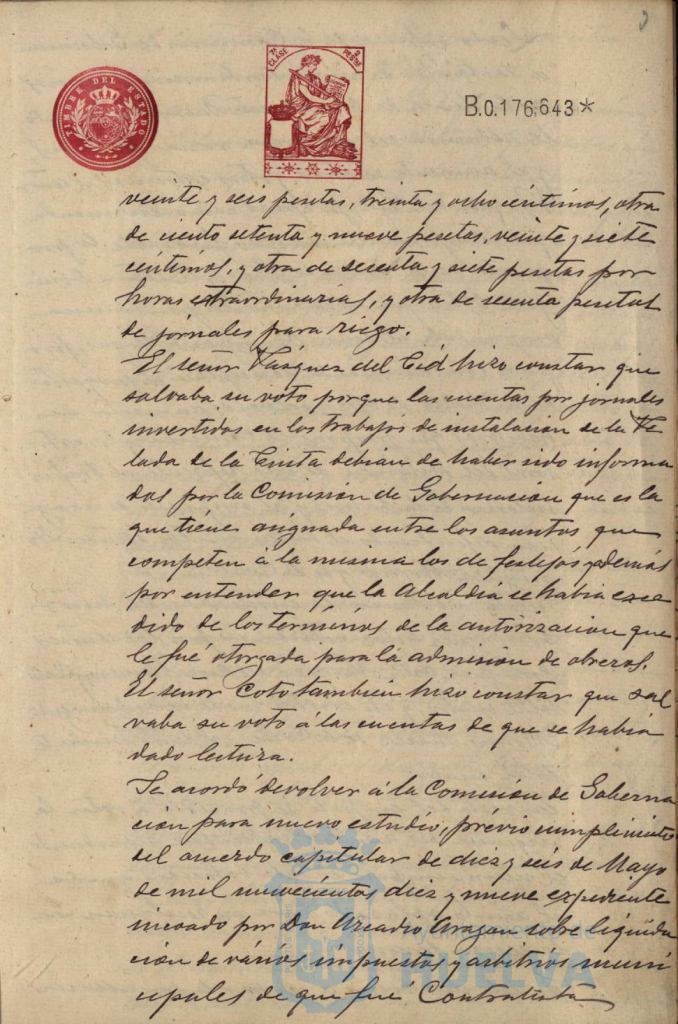 TIMBRE DEL ESTADO
7ª CLASE
2 PESETAS
B.0.176,643*
veinte y seis pesetas, treinta y ocho céntimos, otra
de ciento setenta y nueve pesetas, veinte y siete
céntimos, y otra de sesenta y siete pesetas por
horas extraordinarias, y otra de sesenta pesetas
de jornales para riego.
El señor Vázquez del Cid hizo constar que
salvaba su voto porque las cuentas por jornales
invertidos en los trabajos de instalación de la Ve
lada de la Cinta debían de haber sido informa
das por la Comisión de Gobernación que es la
que tiene asignada entre los asuntos que
competen á la misma los de festejos y además
por entender que la Alcaldía se había exce
dido de los términos de la autorización que
le fué otorgada para la admisión de obreros.
El señor Coto también hizo constar que sal
vaba su voto á las cuentas de que se había
dado lectura.
Se acordó devolver á la Comisión de Goberna
ción para nuevo estudio, prévio cumplimiento
del acuerdo capitular de diez y seis de Mayo
de mil novecientos diez y nueve expediente
incoado por Don Arcadio Aragón sobre liquida
ción de varios impuestos y arbitrios muni
cipales de que fué Contratista
HUELVA